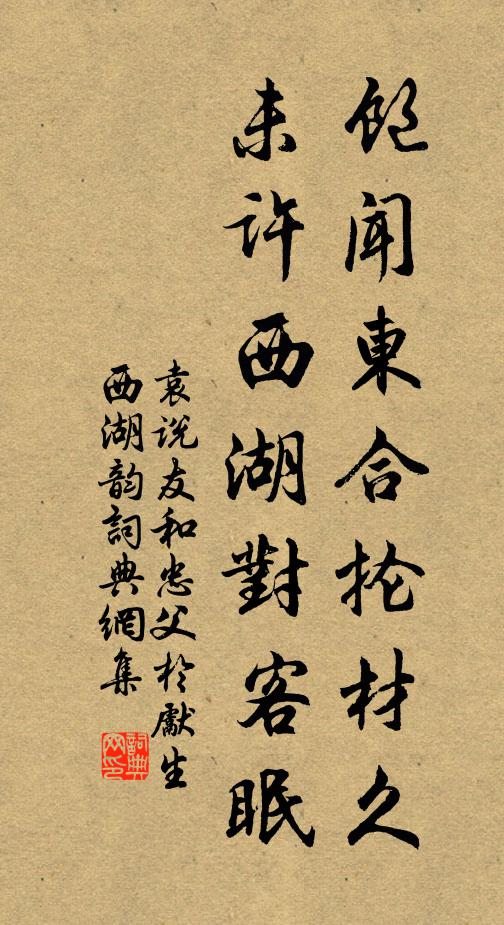 飽聞東合掄材久
未許西湖對客眠
袁說友和忠父於獻生
西湖韵詞典網集
詞典网印